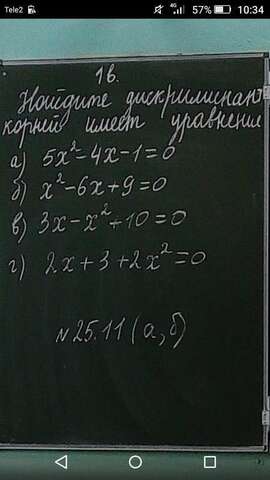 Tele2 4G 57% 10:34
1в.
Найдите дискриминант
корней имеет уравнение
а) 5x²-4x-1=0
б) x²-6x+9=0
в) 3x-x²+10=0
г) 2x+3+2x²=0
№25.11(а,б)